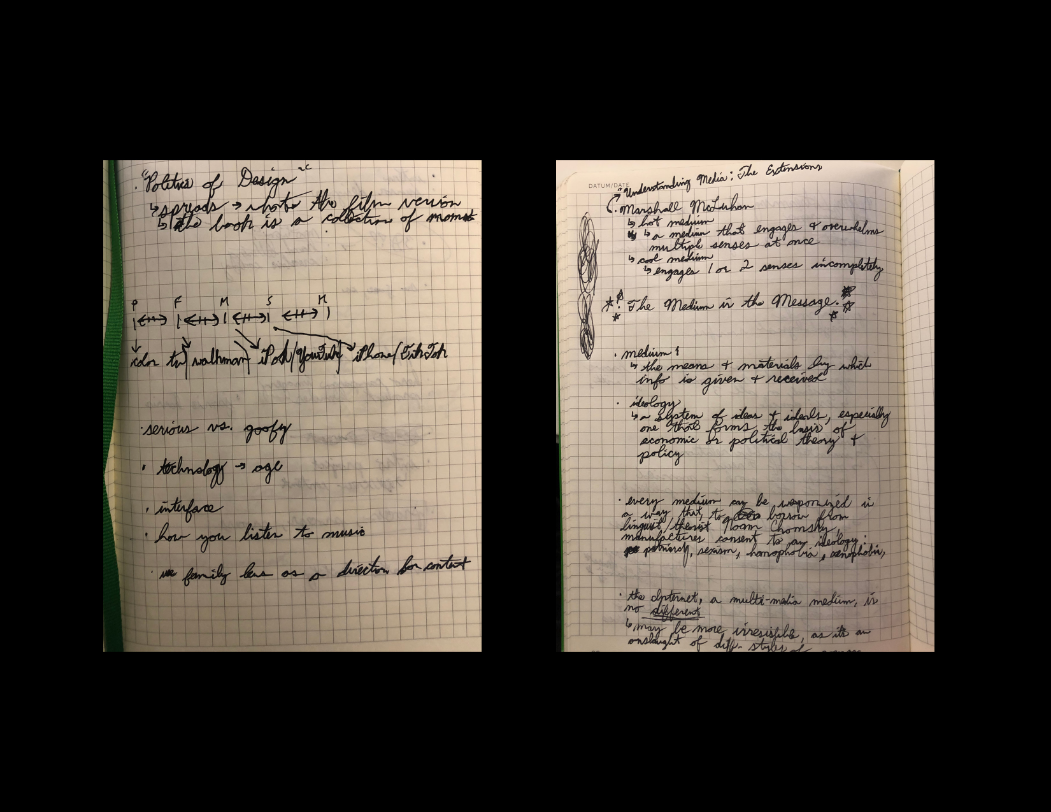 "Politics of Design"
↳ spreads → photo the film version
↳ the book is a collection of moments
P F M S H
color tv walkman iPod/YouTube iPhone/TikTok
· serious vs. goofy
· technology → age
· interface
· how you listen to music
family lens as a direction for context
DATUM/DATE
"Understanding Media: The Extensions
· Marshall McLuhan
↳ hot medium
↳ a medium that engages + overwhelms
multiple senses at once
↳ cool medium
↳ engages 1 or 2 senses incompletely
The Medium is the Message.
· medium
↳ the means + materials by which
info is given + received
· ideology
↳ a system of ideas + ideals, especially
one that forms the basis of
economic or political theory +
policy
· every medium can be weaponized in
a way that, to borrow from
linguist/theorist Noam Chomsky,
manufactures consent to an ideology:
patriarchy, sexism, homophobia, xenophobia,
· the Internet, a multi-media medium, is
no different
↳ may be more irresistible, as its an
onslaught of diff. styles of